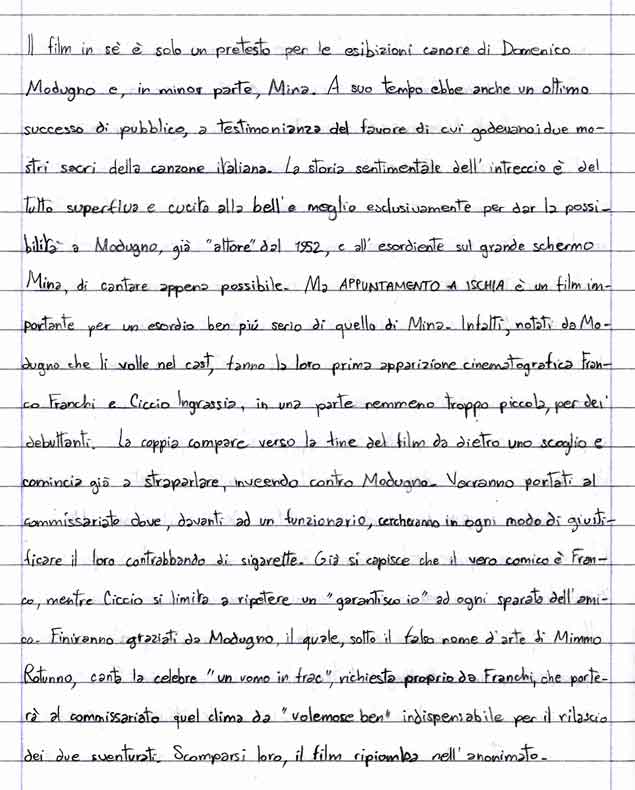 Il film in sè è solo un pretesto per le esibizioni canore di Domenico
Modugno e, in minor parte, Mina. A suo tempo ebbe anche un ottimo
successo di pubblico, a testimonianza del favore di cui godevano i due mo-
stri sacri della canzone italiana. La storia sentimentale dell'intreccio è del
tutto superflua e cucita alla bell'e meglio esclusivamente per dar la possi-
bilità a Modugno, già "attore" dal 1952, e all'esordiente sul grande schermo
Mina, di cantare appena possibile. Ma APPUNTAMENTO A ISCHIA è un film im-
portante per un esordio ben più serio di quello di Mina. Infatti, notati da Mo-
dugno che li volle nel cast, fanno la loro prima apparizione cinematografica Fran-
co Franchi e Ciccio Ingrassia, in una parte nemmeno troppo piccola, per dei
debuttanti. La coppia compare verso la fine del film da dietro uno scoglio e
comincia già a straparlare, inveendo contro Modugno. Verranno portati al
commissariato dove, davanti ad un funzionario, cercheranno in ogni modo di giusti-
ficare il loro contrabbando di sigarette. Già si capisce che il vero comico è Fran-
co, mentre Ciccio si limita a ripetere un "garantisco io" ad ogni sparata dell'ami-
co. Finiranno graziati da Modugno, il quale, sotto il falso nome d'arte di Mimmo
Rotunno, canta la celebre "un uomo in frac", richiesta proprio da Franchi, che porte-
rà al commissariato quel clima da "volemose ben" indispensabile per il rilascio
dei due sventurati. Scomparsi loro, il film ripiomba nell'anonimato.